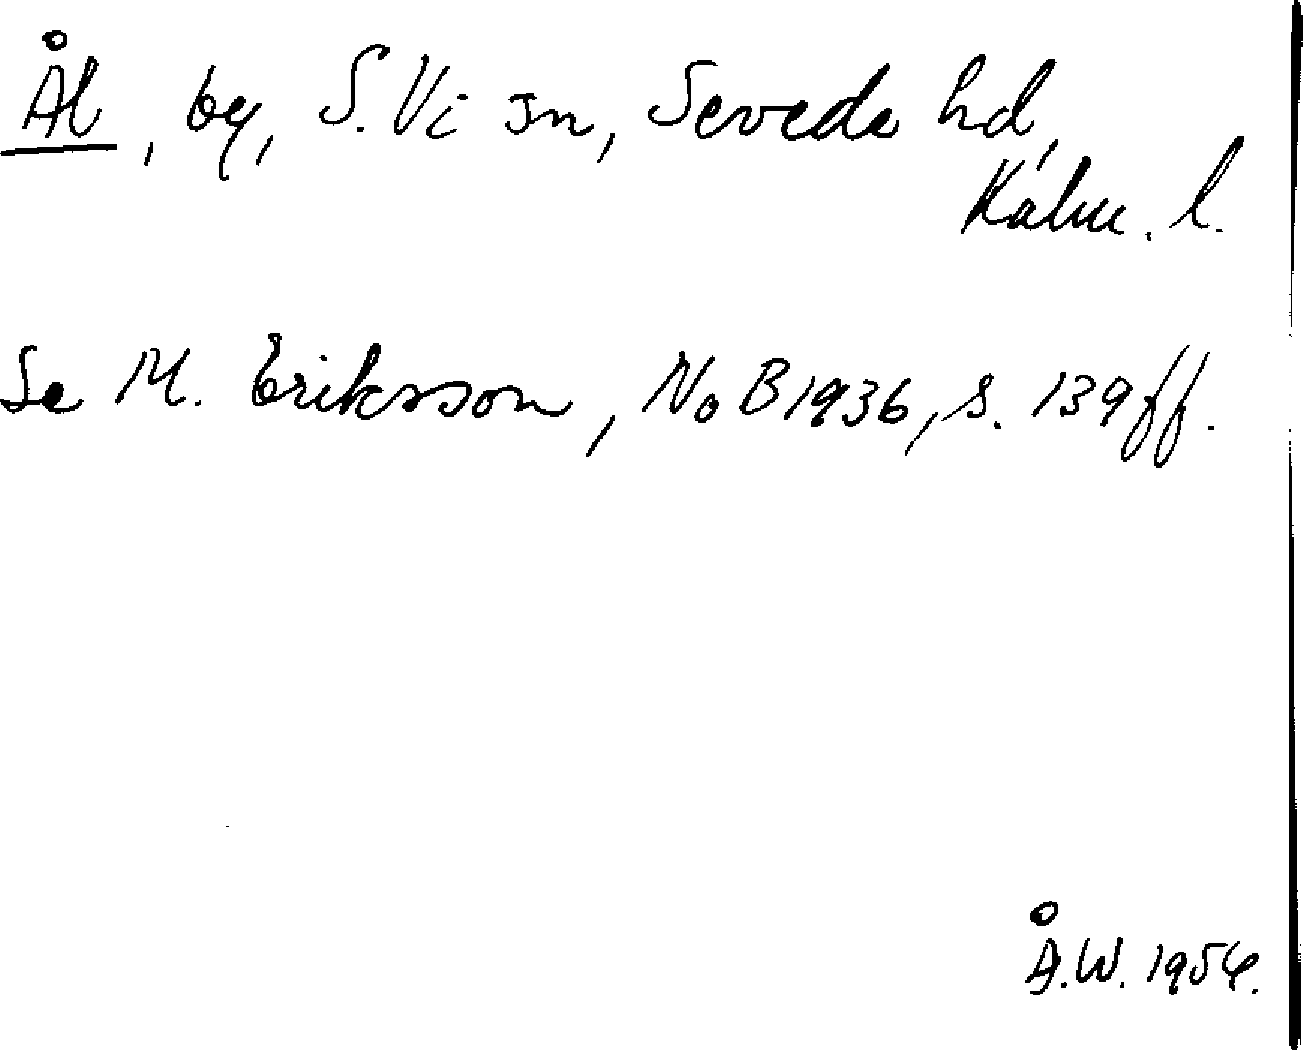 Ål, by, S. Vi sn, Sevede hd,
Kalm. l.
Se M. Eriksson, NoB 1936, s. 139 ff.
Å.W. 1954.